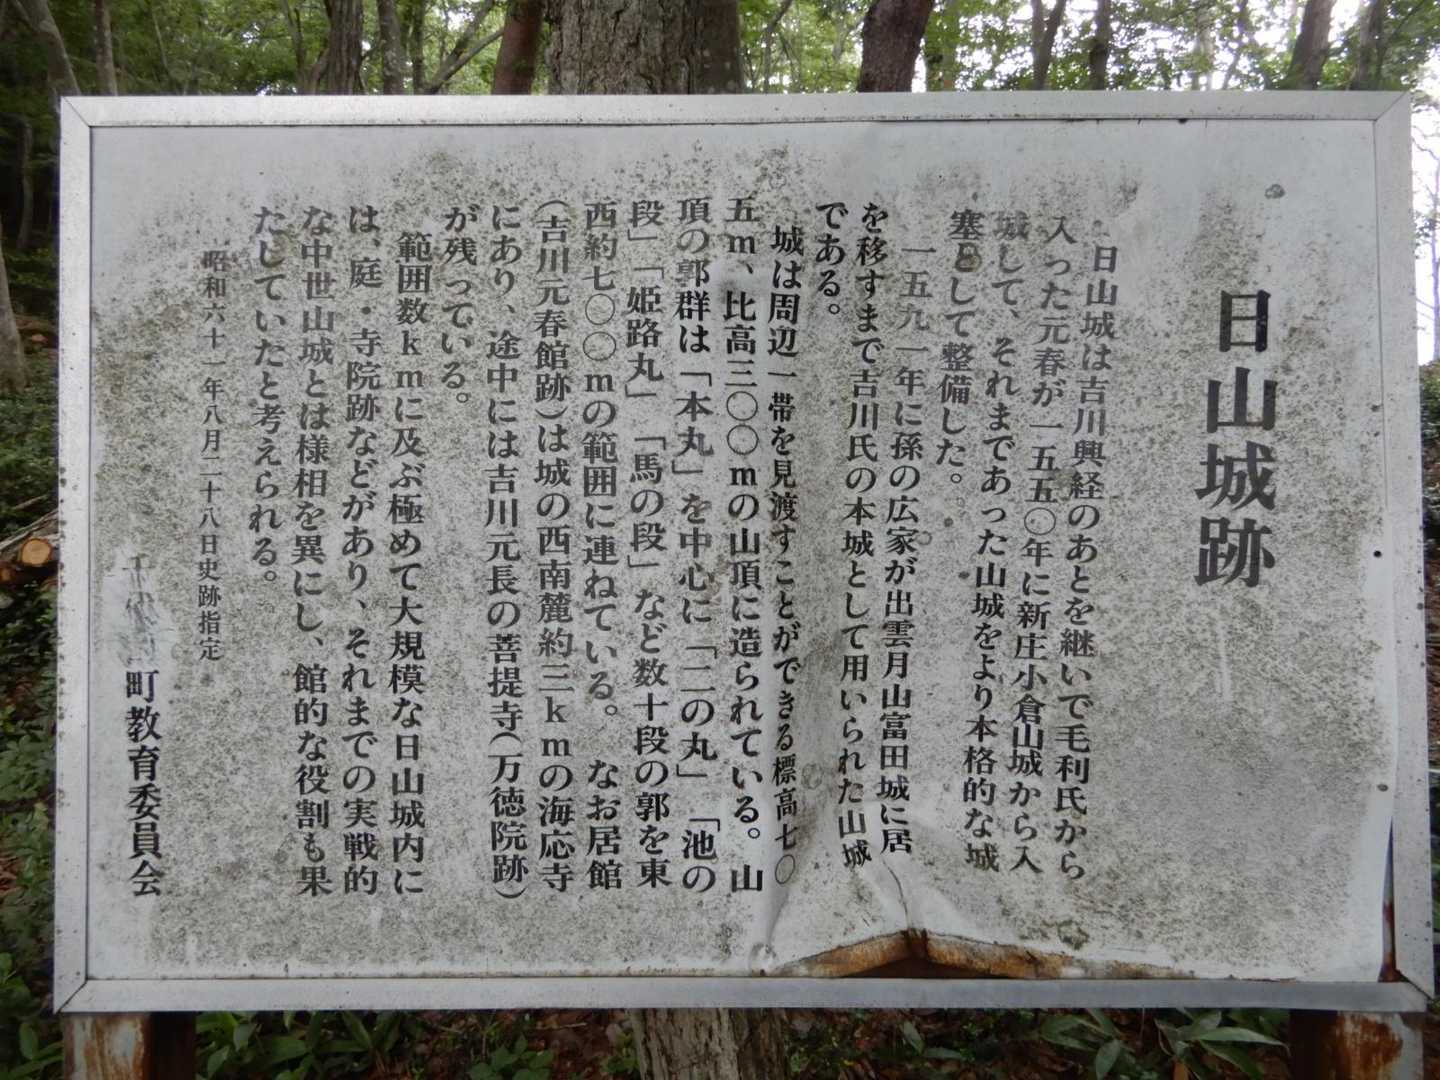 日山城跡
日山城は吉川興経のあとを継いで毛利氏から
入った元春が一五五〇年に新庄小倉山城から入
城して、それまであった山城をより本格的な城
塞として整備した。
一五九一年に孫の広家が出雲月山富田城に居
を移すまで吉川氏の本城として用いられた山城
である。
城は周辺一帯を見渡すことができる標高七〇
五m、比高三〇〇mの山頂に造られている。山
頂の郭群は「本丸」を中心に「二の丸」「池の
段」「姫路丸」「馬の段」など数十段の郭を東
西約七〇〇mの範囲に連ねている。なお居館
(吉川元春館跡)は城の西南麓約三kmの海応寺
にあり、途中には吉川元長の菩提寺(万徳院跡)
が残っている。
範囲数kmに及ぶ極めて大規模な日山城内に
は、庭・寺院跡などがあり、それまでの実戦的
な中世山城とは様相を異にし、館的な役割も果
たしていたと考えられる。
昭和六十一年八月二十八日史跡指定
町教育委員会